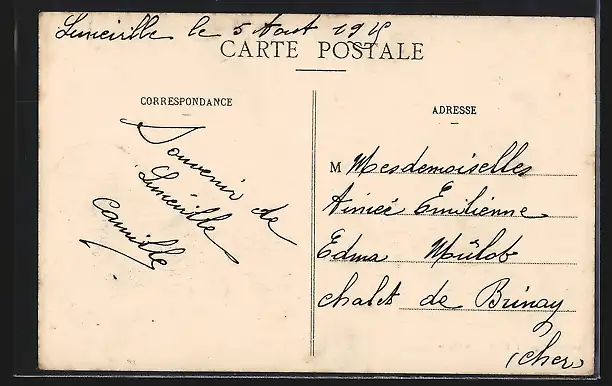 Lunéville le 5 Aout 1915
CARTE POSTALE
CORRESPONDANCE
Souvenir de
Lunéville
Camille
ADRESSE
M Mesdemoiselles
Aimée Emilienne
Edma
Chalet de Brinay
(Cher